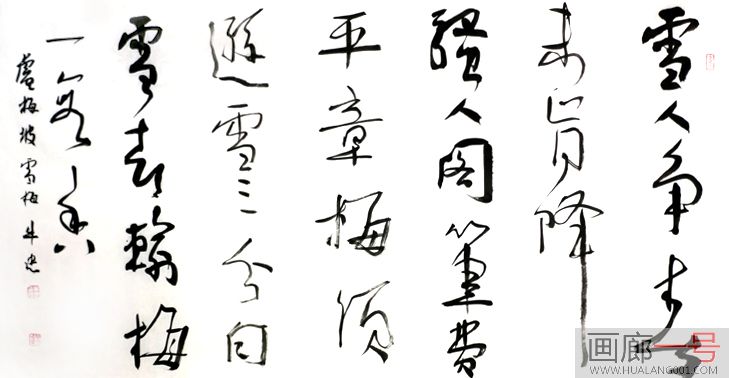 雪人争春
未肯降
騷人阁筆費
平章梅須
遜雪三分白
雪却輸梅
一段香
盧梅坡 雪梅 牛
画廊一号
WWW.HUALANG001.COM